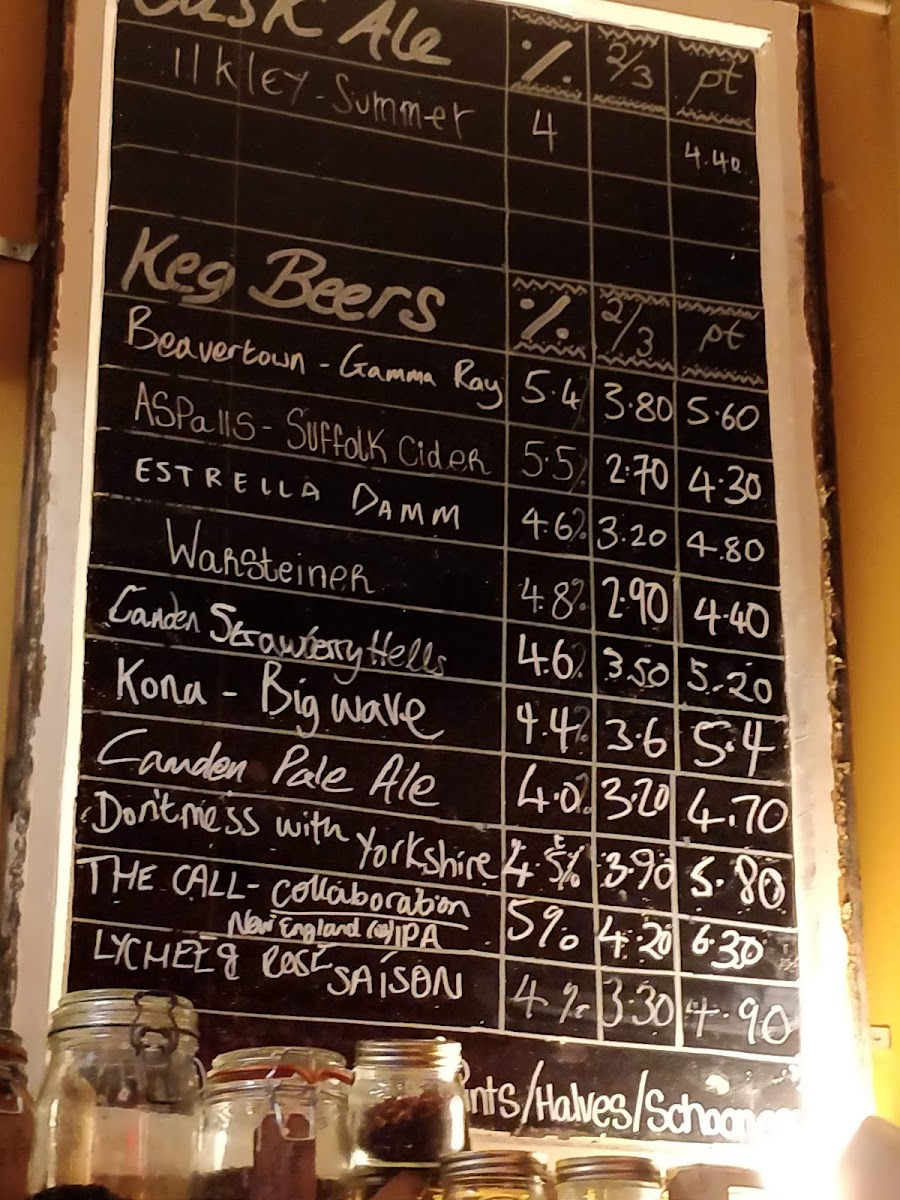 Cask Ale % 2/3 pt
Ilkley - Summer 4 4.40
Keg Beers % 2/3 pt
Beavertown - Gamma Ray 5.4 3.80 5.60
ASPallS - SUFFOLK CideR 5.5 2.70 4.30
ESTRELLA DAMM 4.6% 3.20 4.80
WaRSteineR 4.8% 2.90 4.40
Camden Strawberry Hells 4.6% 3.50 5.20
Kona - Big wave 4.4% 3.6 5.4
Camden Pale Ale 4.0% 3.20 4.70
Don't mess with Yorkshire 4.5% 3.90 5.80
THE CALL - Collaboration 5% 4.20 6.30
New England IPA
LYCHEE & ROSÉ SAISON 4% 3.30 4.90
/Halves/